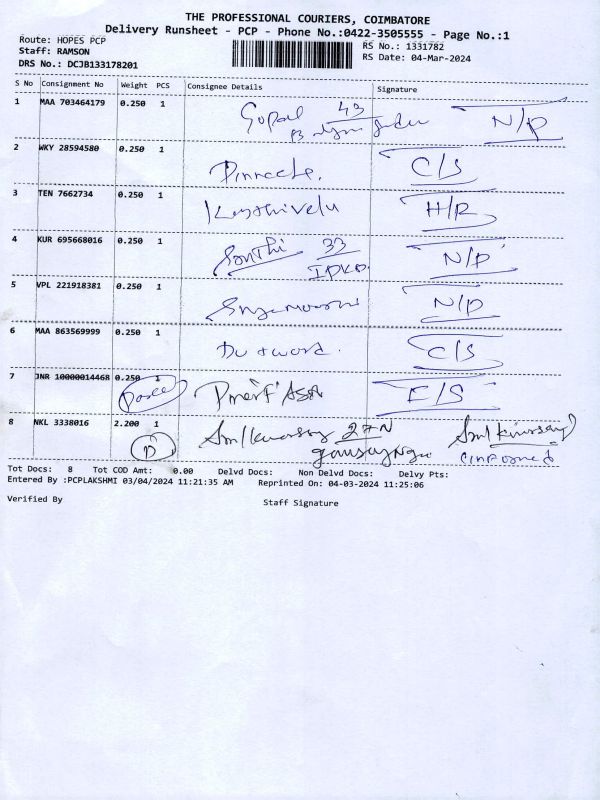 THE PROFESSIONAL COURIERS, COIMBATORE
Delivery Runsheet - PCP - Phone No.:0422-3505555 - Page No.:1
Route: HOPES PCP
Staff: RAMSON
DRS No.: DCJB133178201
RS No.: 1331782
RS Date: 04-Mar-2024
S No Consignment No Weight PCS Consignee Details Signature
1 MAA 703464179 0.250 1 Gopal 43 N/P
2 WKY 28594580 0.250 1 C/S
3 TEN 7662734 0.250 1 H/R
4 KUR 695668016 0.250 1 33 N/P
5 VPL 221918381 0.250 1 N/P
6 MAA 863569999 0.250 1 C/S
7 JNR 10000014468 0.250 1 E/S
8 NKL 3338016 2.200 1 27N
D
Tot Docs: 8 Tot COD Amt: 0.00 Delvd Docs: Non Delvd Docs: Delvy Pts:
Entered By :PCPLAKSHMI 03/04/2024 11:21:35 AM Reprinted On: 04-03-2024 11:25:06
Verified By Staff Signature